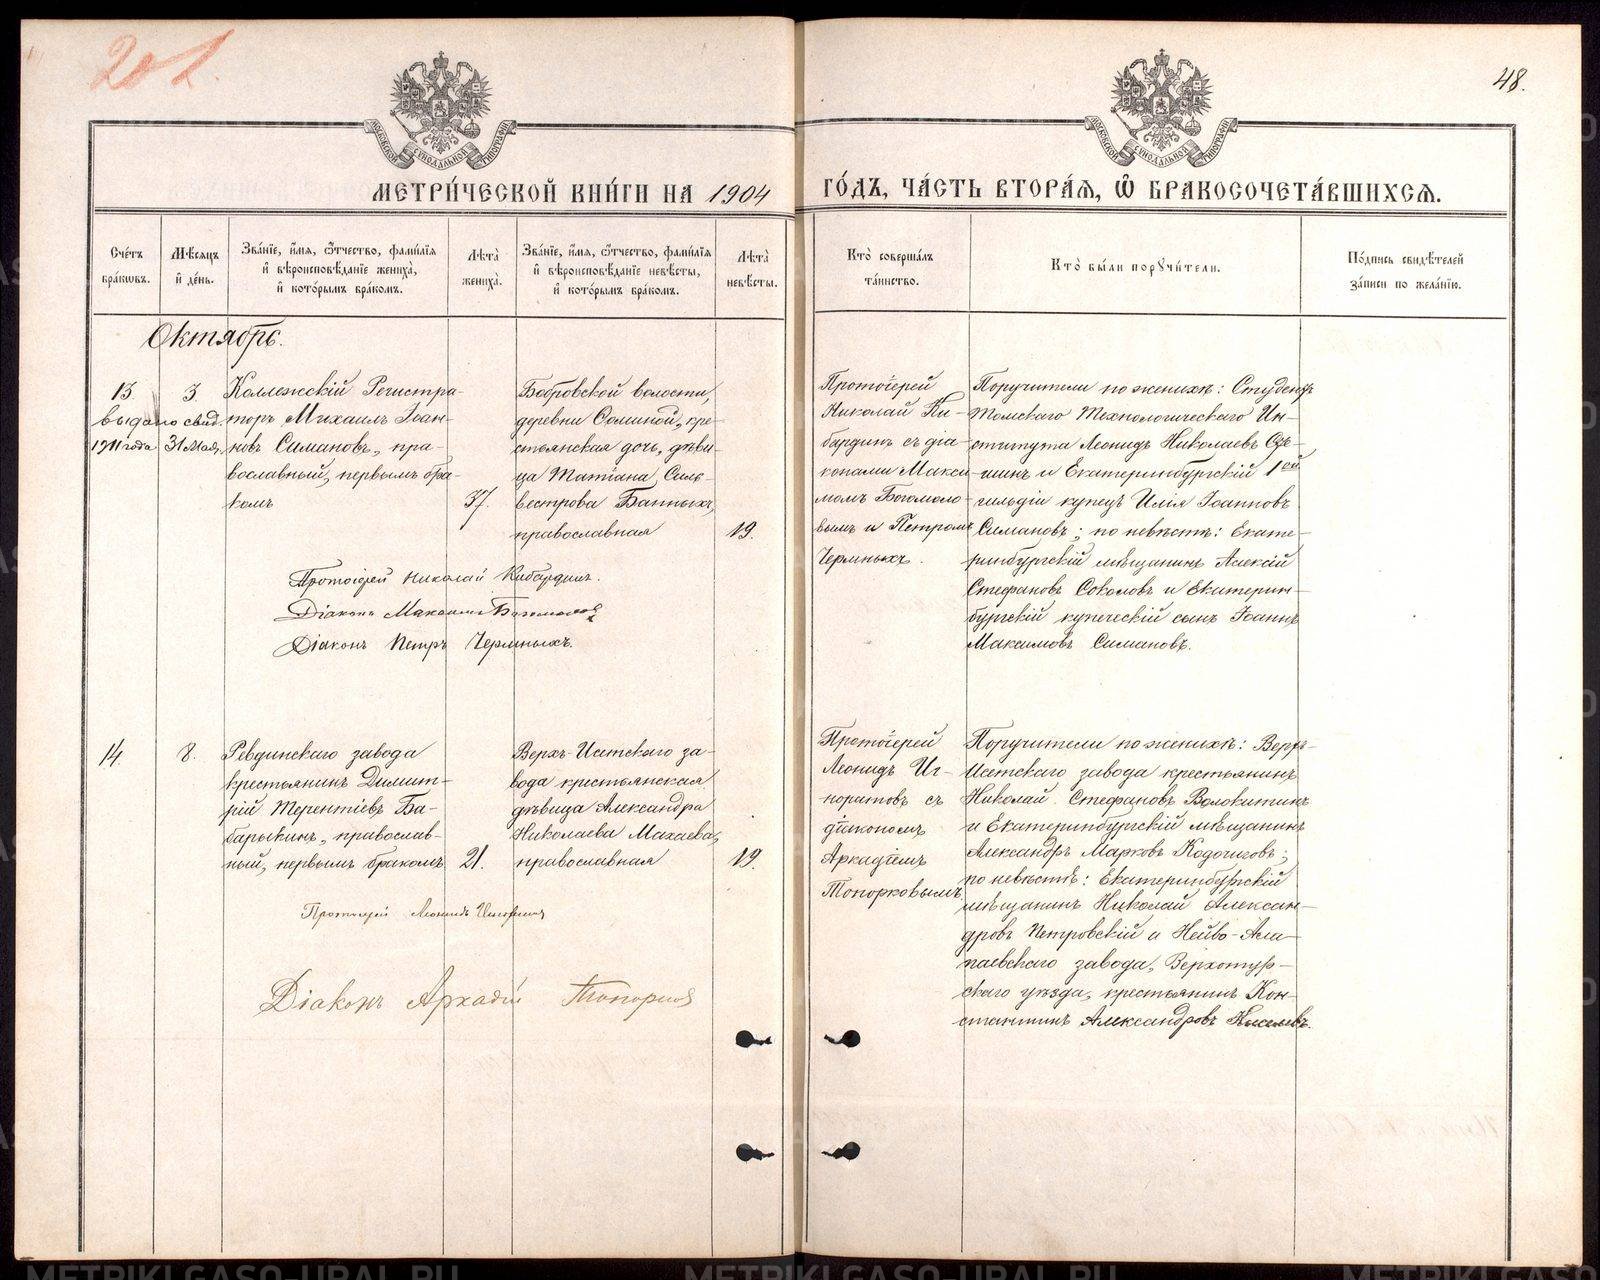 201.
48.
МОСКОВСКОЙ СѴНОДАЛЬНОЙ ТИПОГРАФІИ
МОСКОВСКОЙ СѴНОДАЛЬНОЙ ТИПОГРАФІИ
МЕТРИ́ЧЕСКОЙ КНИ́ГИ НА 1904 ГО́ДЪ, ЧА́СТЬ ВТОРА́Я, Ѽ БРАКОСОЧЕТА́ВШИХСѦ.
Счётъ
бра́кѡвъ.
Мѣ́сѧцъ
и҆ де́нь.
Зва́нїе, и҆́мѧ, ѻ҆́тчество, фами́лїѧ
и҆ вѣроисповѣ́данїе жениха̀,
и҆ кото́рымъ бра́комъ.
Лѣта̀
жениха̀.
Зва́нїе, и҆́мѧ, ѻ҆́тчество, фами́лїѧ
и҆ вѣроисповѣ́данїе невѣ́сты,
и҆ кото́рымъ бра́комъ.
Лѣта̀
невѣ́сты.
Кто̀ соверша́лъ
та́инство.
Кто̀ бы́ли порꙋчи́тели.
По́дпись свидѣ́телей
за́писи по жела́нїю.
Октябрь.
13
выдано свид.
1911 года 31 Мая.
3.
Коллежскій Регистра-
торъ Михаилъ Іоан-
новъ Симановъ, пра-
вославный, первымъ бра-
комъ
37.
Бобровской волости,
деревни Соминой, кре-
стьянская дочь, дѣви-
ца Татіана Силь-
вестрова Банныхъ,
православная
19.
Протоіерей
Николай Ки-
бардинъ съ діа-
конами Макси-
момъ Богомоло-
вымъ и Петромъ
Черемныхъ.
Поручители по женихѣ: Студентъ
Томскаго Технологическаго Ин-
ститута Леонидъ Николаевъ
и Екатеринбургскій 1ой
гильдіи купецъ Илія Іоанновъ
Симановъ; по невѣстѣ: Екате-
ринбургскій мѣщанинъ Алексій
Стефановъ Соколовъ и Екатерин-
бургскій купеческій сынъ Іоаннъ
Максимовъ Симановъ.
Протоіерей Николай Кибардинъ.
Діаконъ Максимъ Богомоловъ
Діаконъ Петръ Черемныхъ.
14
8.
Ревдинскаго завода
крестьянинъ Димит-
рій Терентіевъ Ба-
барыкинъ, православ-
ный, первымъ бракомъ
21.
Верхъ-Исетскаго за-
вода крестьянская
дѣвица Александра
Николаева Махаева,
православная
19.
Протоіерей
Леонидъ Иг-
норатовъ съ
діакономъ
Аркадіемъ
Топорковымъ
Поручители по женихѣ: Верхъ-
Исетскаго завода крестьянинъ
Николай Стефановъ Волокитинъ
и Екатеринбургскій мѣщанинъ
Александръ Марковъ Кодочиговъ;
по невѣстѣ: Екатеринбургскій
мѣщанинъ Николай Алексан-
дровъ Петровскій и Нейво-Ала-
паевскаго завода, Верхотур-
скаго уѣзда, крестьянинъ Кон-
стантинъ Александровъ Киселевъ.
Протоіерей Леонидъ Игноратовъ
Діаконъ Аркадій Топорковъ
METRIKI.GASO-URAL.RU